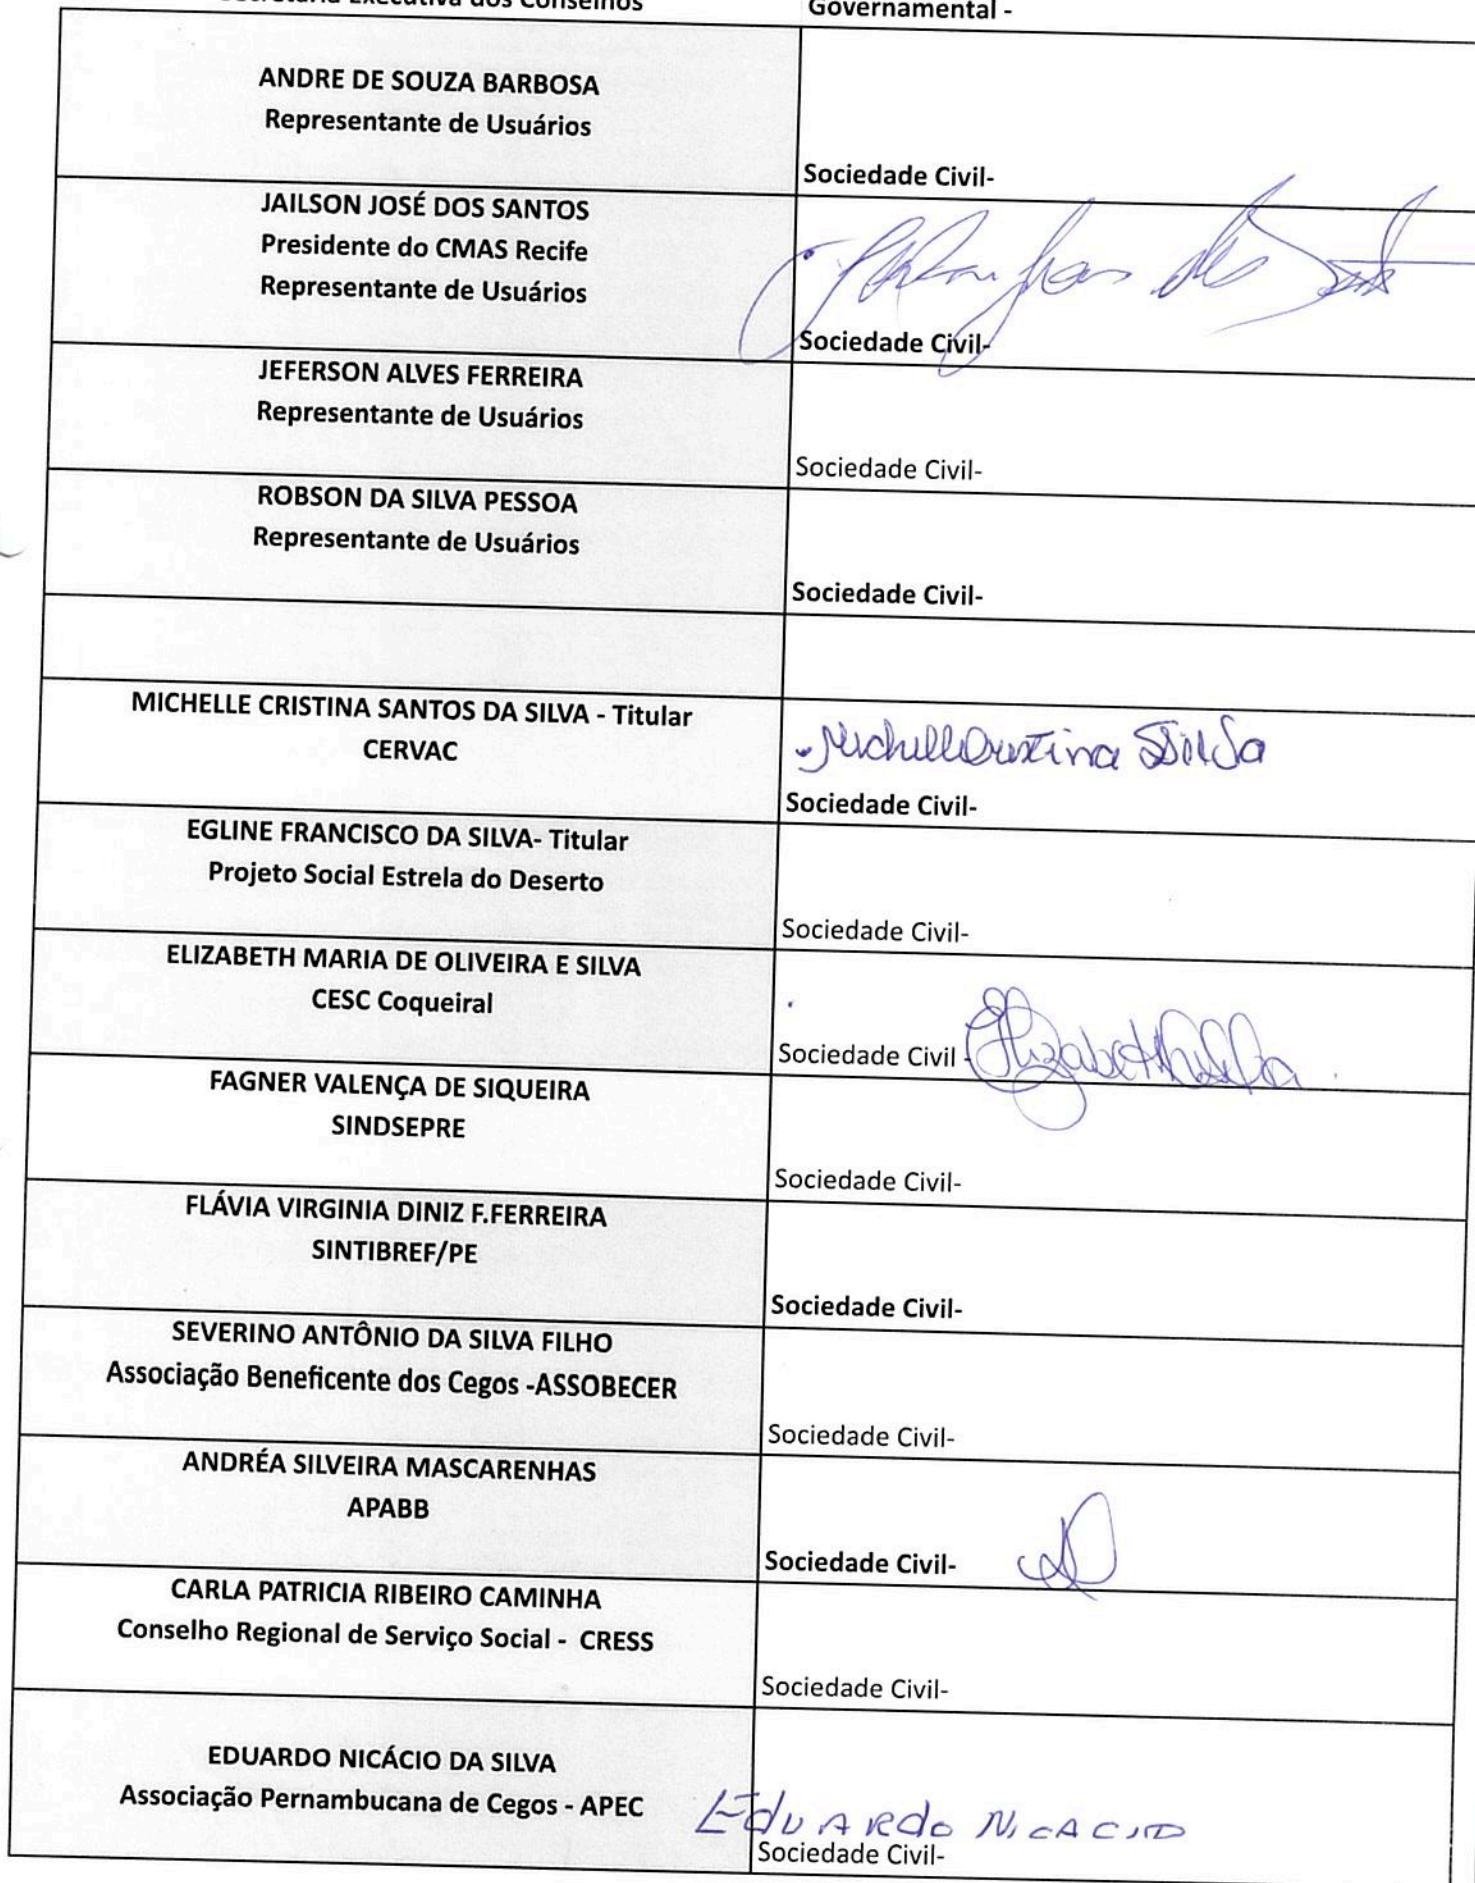 Executiva dos Conselhos
Governamental -
ANDRE DE SOUZA BARBOSA
Representante de Usuários
Sociedade Civil-
JAILSON JOSÉ DOS SANTOS
Presidente do CMAS Recife
Representante de Usuários
Sociedade Civil-
JEFERSON ALVES FERREIRA
Representante de Usuários
Sociedade Civil-
ROBSON DA SILVA PESSOA
Representante de Usuários
Sociedade Civil-
MICHELLE CRISTINA SANTOS DA SILVA - Titular
CERVAC
Michelle Cristina S Silva
Sociedade Civil-
EGLINE FRANCISCO DA SILVA- Titular
Projeto Social Estrela do Deserto
Sociedade Civil-
ELIZABETH MARIA DE OLIVEIRA E SILVA
CESC Coqueiral
Sociedade Civil - Elizabeth
FAGNER VALENÇA DE SIQUEIRA
SINDSEPRE
Sociedade Civil-
FLÁVIA VIRGINIA DINIZ F.FERREIRA
SINTIBREF/PE
Sociedade Civil-
SEVERINO ANTÔNIO DA SILVA FILHO
Associação Beneficente dos Cegos -ASSOBECER
Sociedade Civil-
ANDRÉA SILVEIRA MASCARENHAS
APABB
Sociedade Civil-
CARLA PATRICIA RIBEIRO CAMINHA
Conselho Regional de Serviço Social - CRESS
Sociedade Civil-
EDUARDO NICÁCIO DA SILVA
Associação Pernambucana de Cegos - APEC
Eduardo Nicacio
Sociedade Civil-